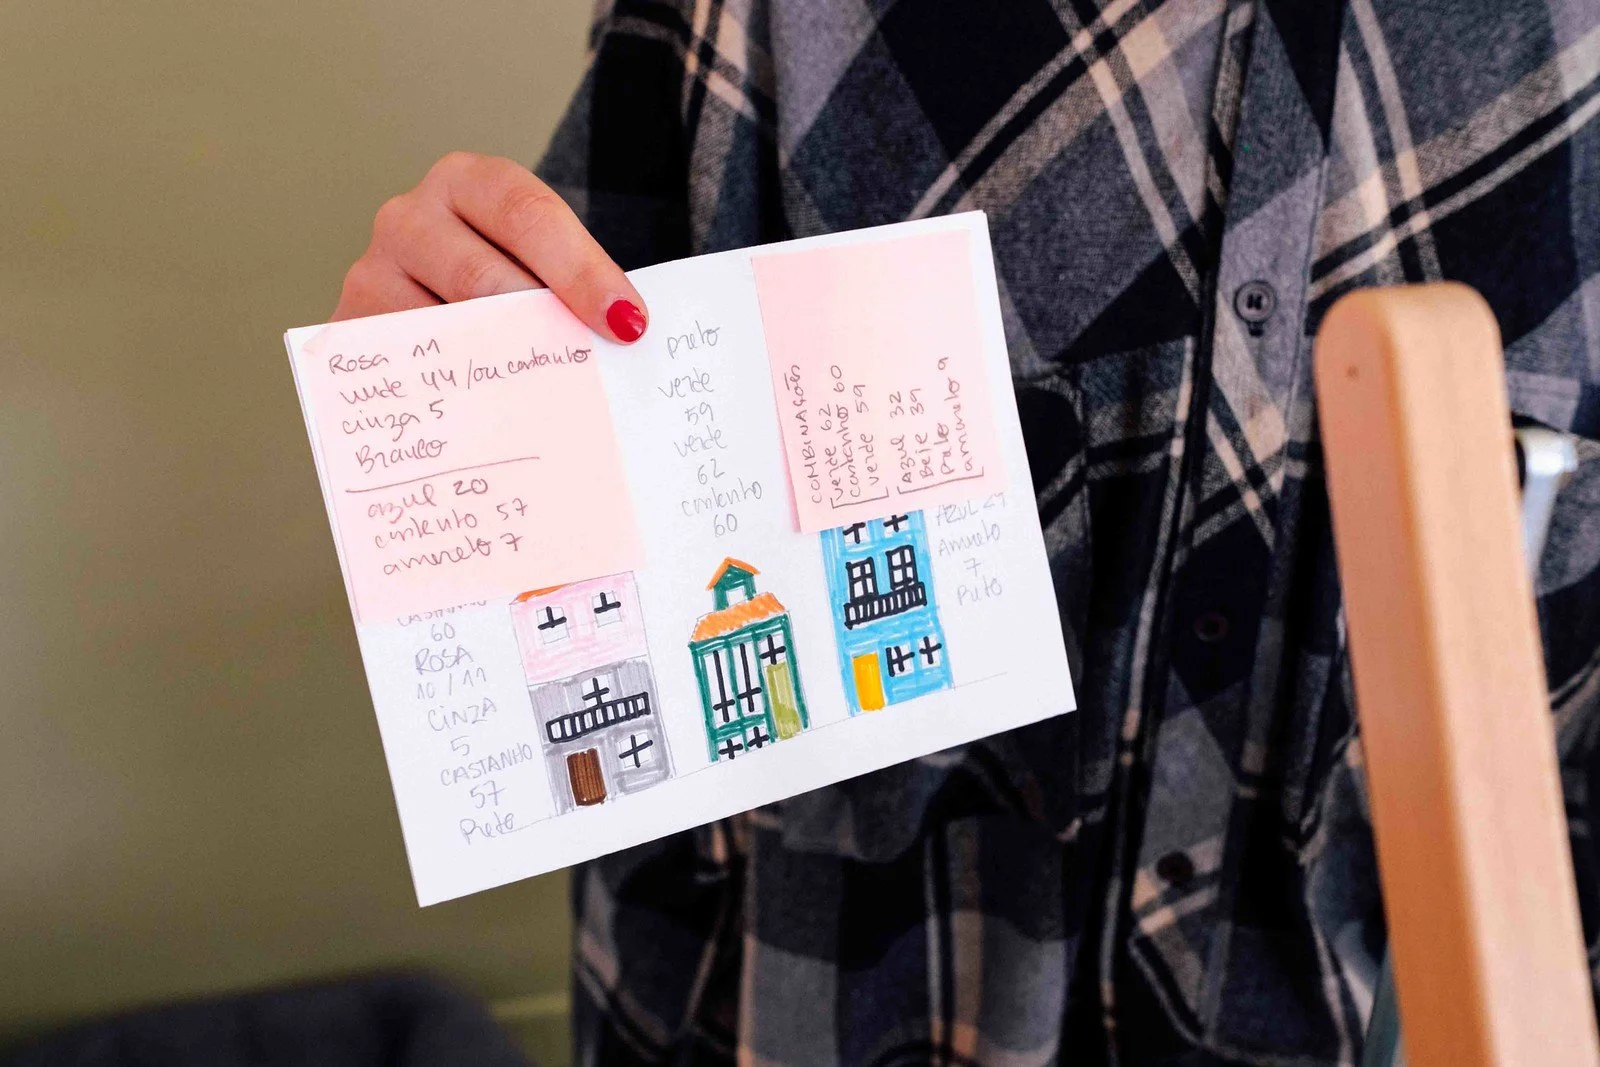 Rosa 11
verde 44 / ou castanho
cinza 5
Branco
azul 20
cinzento 57
amarelo 7
CASTANHO
60
ROSA
10 / 11
CINZA
5
CASTANHO
57
Preto
preto
verde
59
verde
62
cinzento
60
COMBINAÇÕES
verde 62
castanho 60
verde 59
Azul 32
Beje 39
Preto
amarelo 9
AZUL
Amarelo
7
Preto